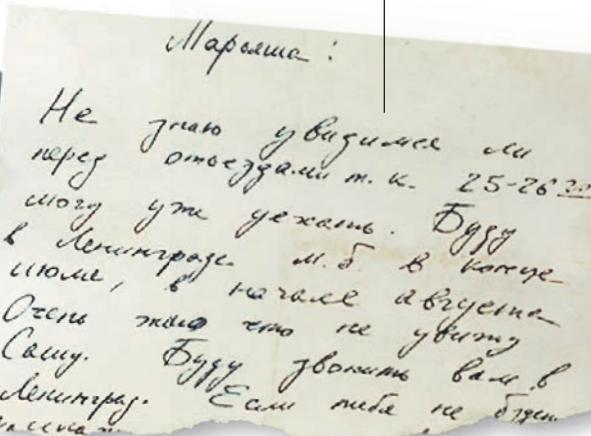 Марьяша:
Не знаю увидимся ли
перед отъездами т.к. 25-26го
могу уже уехать. Буду
в Ленинграде м.б. в конце
июля, в начале августа
Очень жаль что не увижу
Сашу. Буду звонить вам в
Ленинград. Если тебя не будет